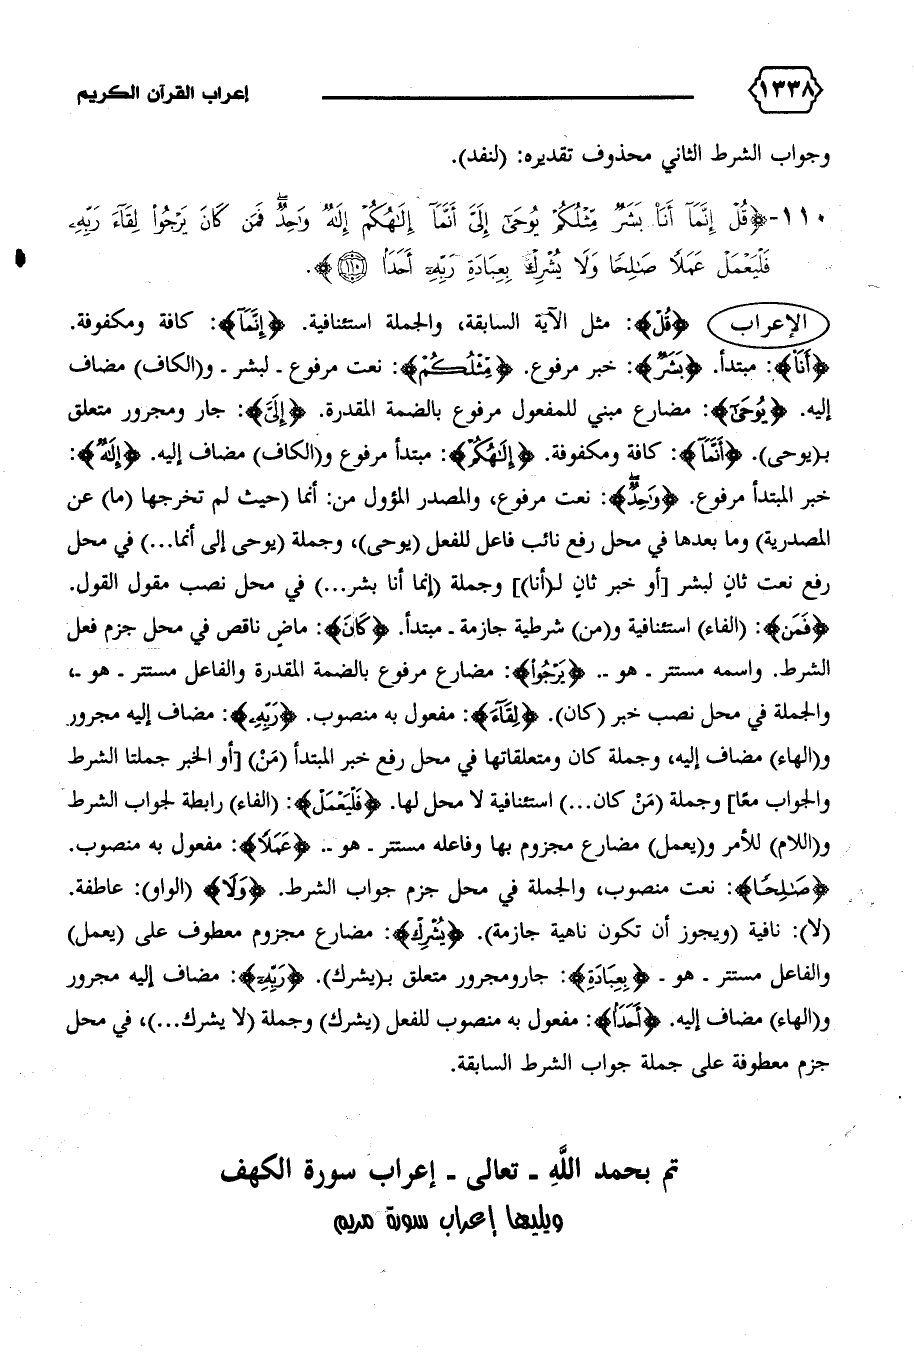 ١٣٣٨ إعراب القرآن الكريم
وجواب الشرط الثاني محذوف تقديره: (لنفد).
١١٠-﴿قُلْ إِنَّمَآ أَنَا۠ بَشَرٌ مِّثْلُكُمْ يُوحَىٰٓ إِلَىَّ أَنَّمَآ إِلَـٰهُكُمْ إِلَـٰهٌ وَٰحِدٌ ۖ فَمَن كَانَ يَرْجُوا۟ لِقَآءَ رَبِّهِۦ
فَلْيَعْمَلْ عَمَلًا صَـٰلِحًا وَلَا يُشْرِكْ بِعِبَادَةِ رَبِّهِۦٓ أَحَدًۢا ۝١١٠﴾.
الإعراب ﴿قُلْ﴾: مثل الآية السابقة، والجملة استئنافية. ﴿إِنَّمَآ﴾: كافة ومكفوفة.
﴿أَنَا۠﴾: مبتدأ. ﴿بَشَرٌ﴾: خبر مرفوع. ﴿مِّثْلُكُمْ﴾: نعت مرفوع ـ لبشر ـ و(الكاف) مضاف
إليه. ﴿يُوحَىٰٓ﴾: مضارع مبني للمفعول مرفوع بالضمة المقدرة. ﴿إِلَىَّ﴾: جار ومجرور متعلق
بـ(يوحى). ﴿أَنَّمَآ﴾: كافة ومكفوفة. ﴿إِلَـٰهُكُمْ﴾: مبتدأ مرفوع و(الكاف) مضاف إليه. ﴿إِلَـٰهٌ﴾:
خبر المبتدأ مرفوع. ﴿وَٰحِدٌ ۖ﴾: نعت مرفوع، والمصدر المؤول من: أنما (حيث لم تخرجها (ما) عن
المصدرية) وما بعدها في محل رفع نائب فاعل للفعل (يوحى)، وجملة (يوحى إلى أنما...) في محل
رفع نعت ثانٍ لبشر [أو خبر ثانٍ لـ(أنا)] وجملة (إنما أنا بشر...) في محل نصب مقول القول.
﴿فَمَن﴾: (الفاء) استئنافية و(من) شرطية جازمة ـ مبتدأ. ﴿كَانَ﴾: ماضٍ ناقص في محل جزم فعل
الشرط. واسمه مستتر ـ هو ـ. ﴿يَرْجُوا۟﴾: مضارع مرفوع بالضمة المقدرة والفاعل مستتر ـ هو ـ،
والجملة في محل نصب خبر (كان). ﴿لِقَآءَ﴾: مفعول به منصوب. ﴿رَبِّهِۦ﴾: مضاف إليه مجرور
و(الهاء) مضاف إليه، وجملة كان ومتعلقاتها في محل رفع خبر المبتدأ (مَنْ) [أو الخبر جملتا الشرط
والجواب معًا] وجملة (مَنْ كان...) استئنافية لا محل لها. ﴿فَلْيَعْمَلْ﴾: (الفاء) رابطة لجواب الشرط
و(اللام) للأمر و(يعمل) مضارع مجزوم بها وفاعله مستتر ـ هو ـ. ﴿عَمَلًا﴾: مفعول به منصوب.
﴿صَـٰلِحًا﴾: نعت منصوب، والجملة في محل جزم جواب الشرط. ﴿وَلَا﴾ (الواو): عاطفة.
(لا): نافية (ويجوز أن تكون ناهية جازمة). ﴿يُشْرِكْ﴾: مضارع مجزوم معطوف على (يعمل)
والفاعل مستتر ـ هو ـ ﴿بِعِبَادَةِ﴾: جارومجرور متعلق بـ(يشرك). ﴿رَبِّهِۦٓ﴾: مضاف إليه مجرور
و(الهاء) مضاف إليه. ﴿أَحَدًۢا﴾: مفعول به منصوب للفعل (يشرك) وجملة (لا يشرك...)، في محل
جزم معطوفة على جملة جواب الشرط السابقة.
تم بحمد اللَّهِ ـ تعالى ـ إعراب سورة الكهف
ويليها إعراب سورة مريم